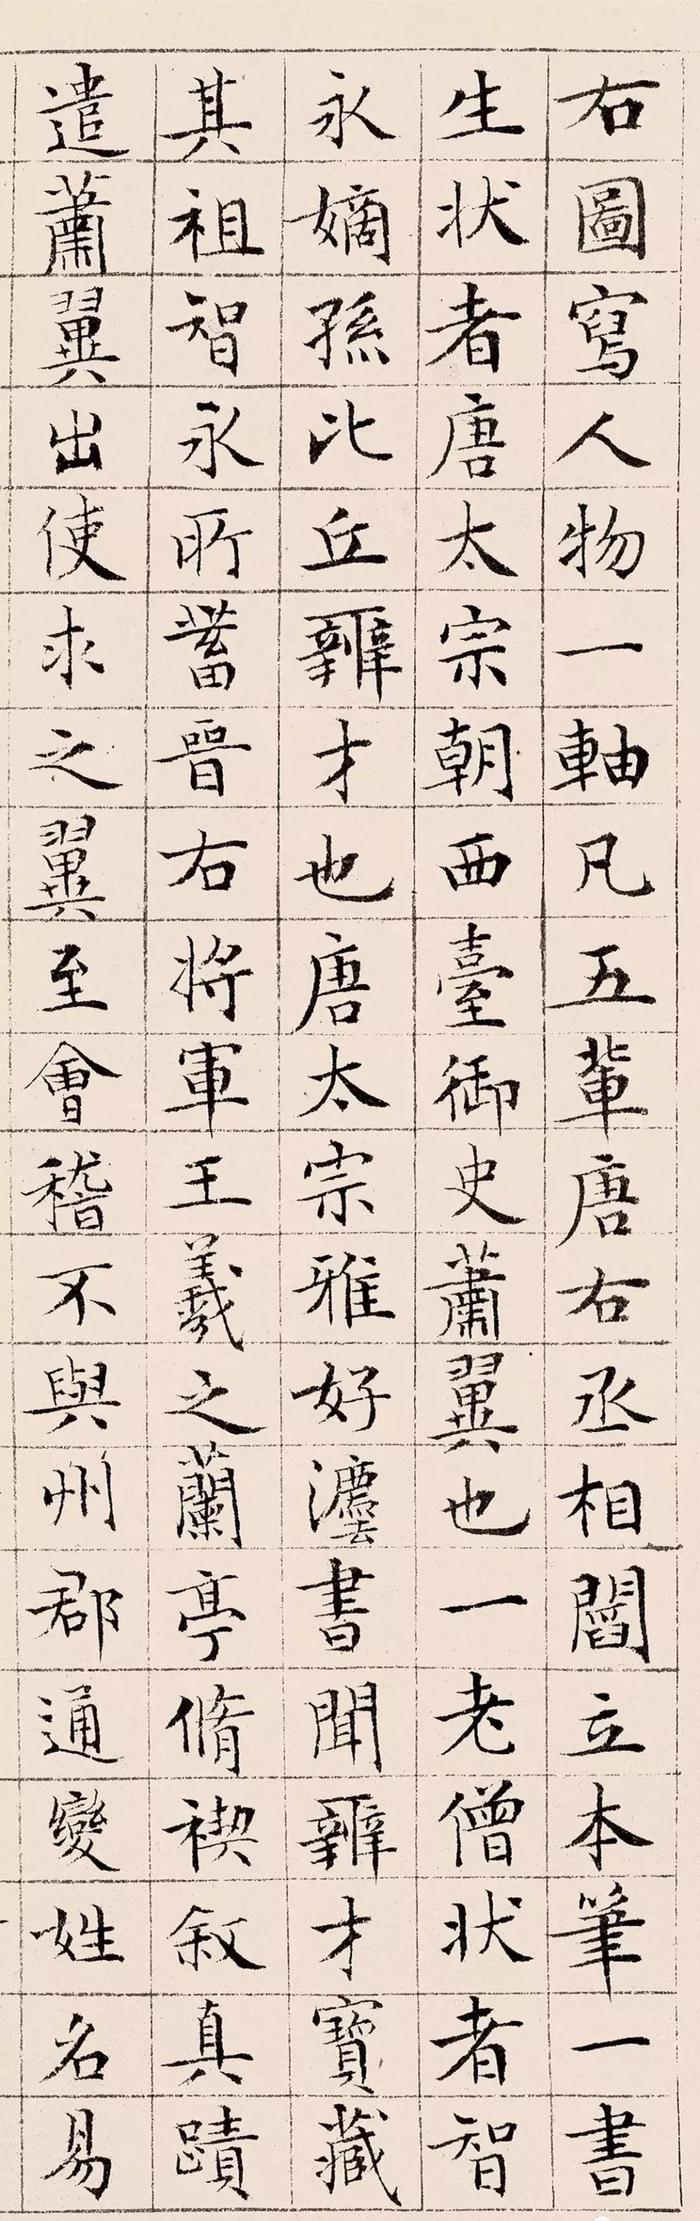 右圖寫人物一軸凡五輩唐右丞相閻立本筆一書
生状者唐太宗朝西臺御史蕭翼也一老僧状者智
永嫡孫比丘辯才也唐太宗雅好灋書聞辯才寶藏
其祖智永所蓄晉右將軍王羲之蘭亭脩禊敘真蹟
遣蕭翼出使求之翼至會稽不與州郡通變姓名易